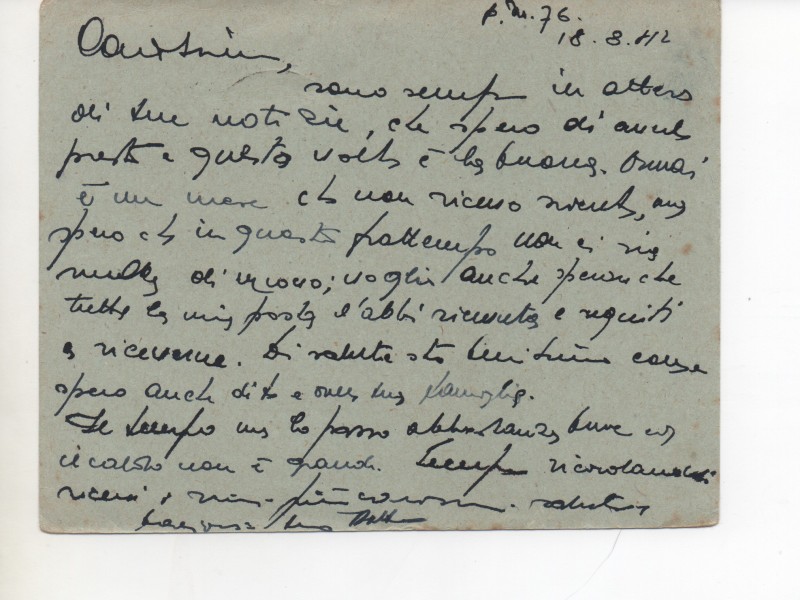 P.M. 76.
18.8.42
Carissima,
sono sempre in attesa
di tue notizie, che spero di averle
presto e questa volta è la buona. Ormai
è un mese che non ricevo niente, ma
spero che in questo frattempo non ci sia
nulla di nuovo; voglio anche sperare che
tutta la mia posta l'abbi ricevuta e seguiti
a riceverne. Di salute sto benissimo come
spero anche di te e della tua famiglia.
Il tempo me lo passo abbastanza bene
il caldo non è grande. Sempre ricordandoti
ricevi i miei più cari saluti
tuo